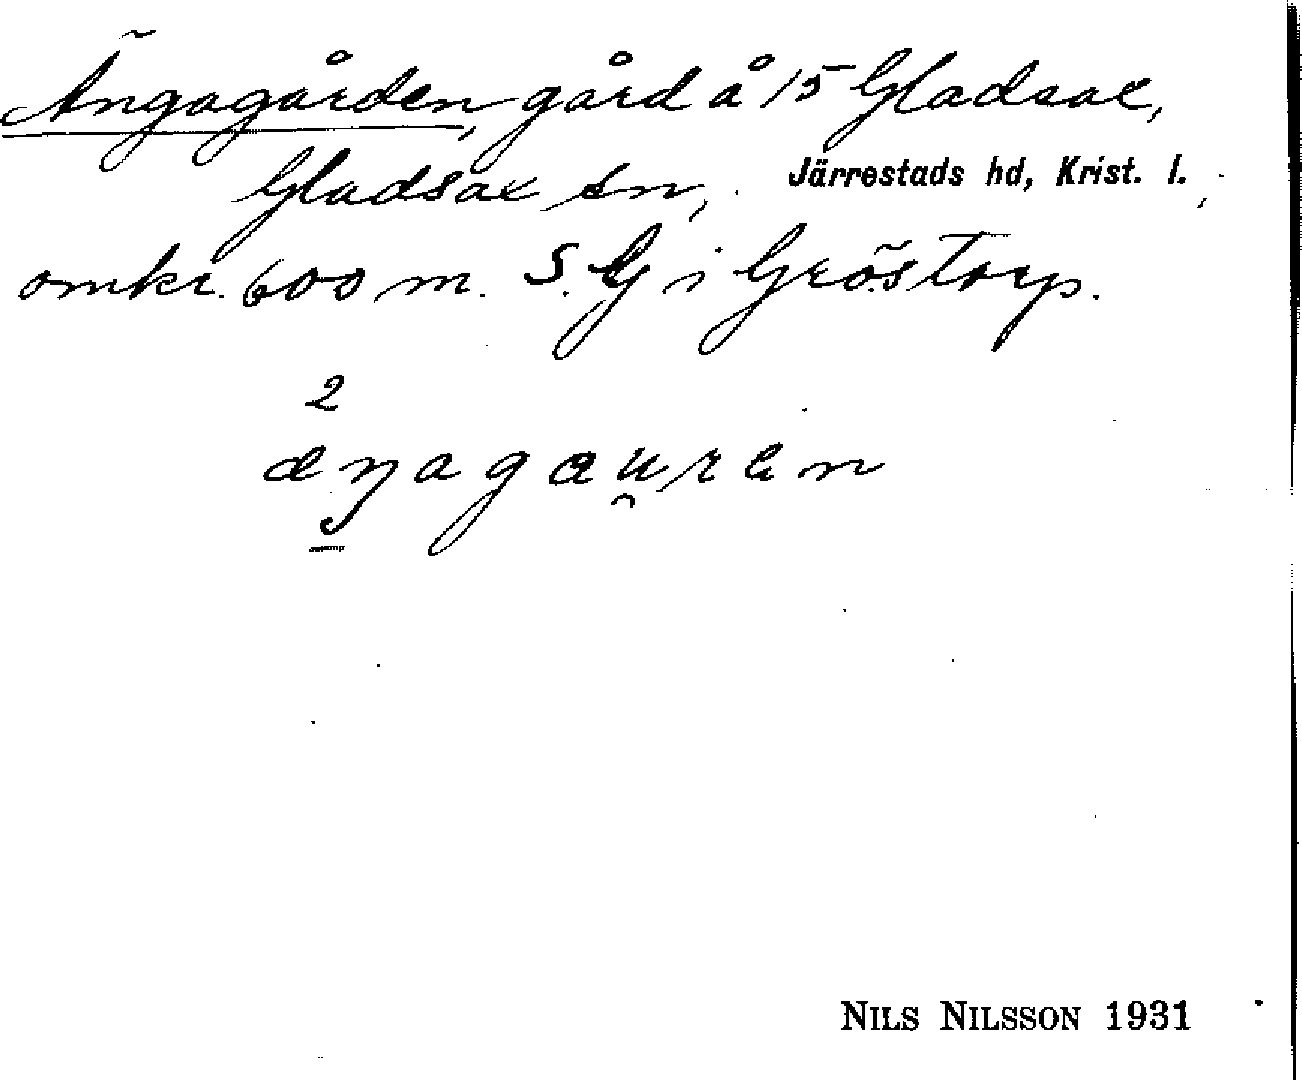 Ängagården, gård å 15 Gladsax,
Gladsax sn, Järrestads hd, Krist. l.,
omkr. 600 m. S. G i Gröstorp.
2
æŋagau̯ren
NILS NILSSON 1931